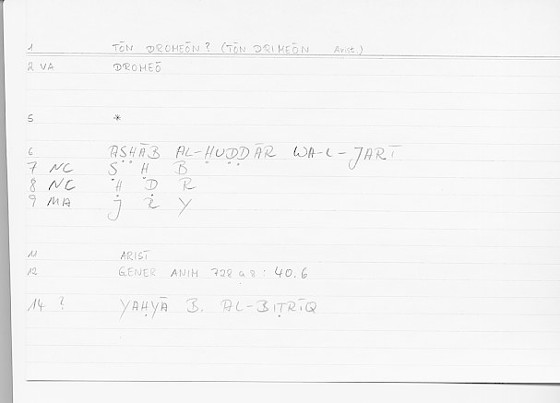 1 TŌN DROMEŌN? (TŌN DRIMEŌN Arist.)
2 VA DROMEŌ
5 *
6 AṢḤĀB AL-ḤUḌḌĀR WA-L-JARY
7 NC Ṣ Ḥ B
8 NC Ḥ Ḍ R
9 MA J R Y
11 ARIST
12 GENER ANIM 728 a 8: 40.6
14 ? YAḤYĀ B. AL-BIṬRĪQ